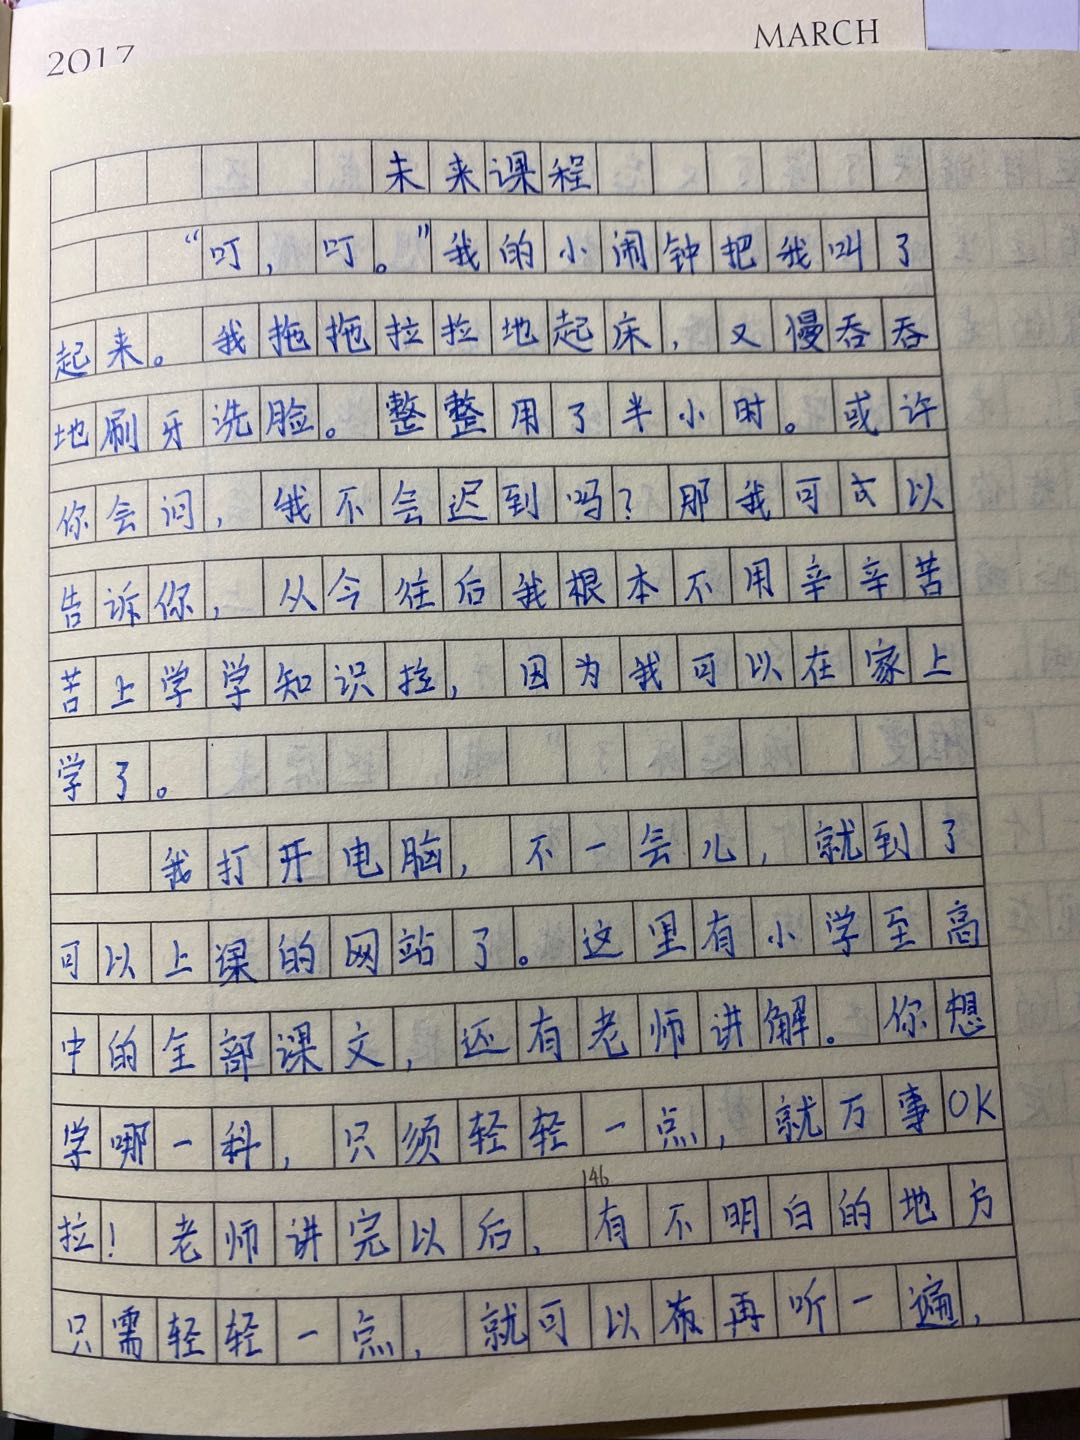 2017 MARCH
未来课程
“叮，叮。”我的小闹钟把我叫了
起来。我拖拖拉拉地起床，又慢吞吞
地刷牙洗脸。整整用了半小时。或许
你会问，我不会迟到吗？那我可以
告诉你，从今往后我根本不用辛辛苦
苦上学学知识拉，因为我可以在家上
学了。
我打开电脑，不一会儿，就到了
可以上课的网站了。这里有小学至高
中的全部课文，还有老师讲解。你想
学哪一科，只须轻轻一点，就万事OK
拉！老师讲完以后，有不明白的地方
146
只需轻轻一点，就可以再听一遍，